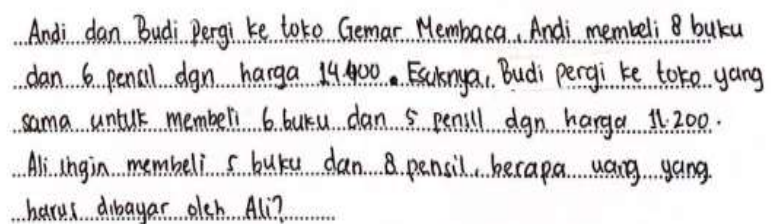 Andi dan Budi pergi ke toko Gemar Membaca. Andi membeli 8 buku
dan 6 pensil dgn harga 14.400. Esoknya, Budi pergi ke toko yang
sama untuk membeli 6 buku dan 5 pensil dgn harga 11.200.
Ali ingin membeli 5 buku dan 8 pensil, berapa uang yang
harus dibayar oleh Ali?